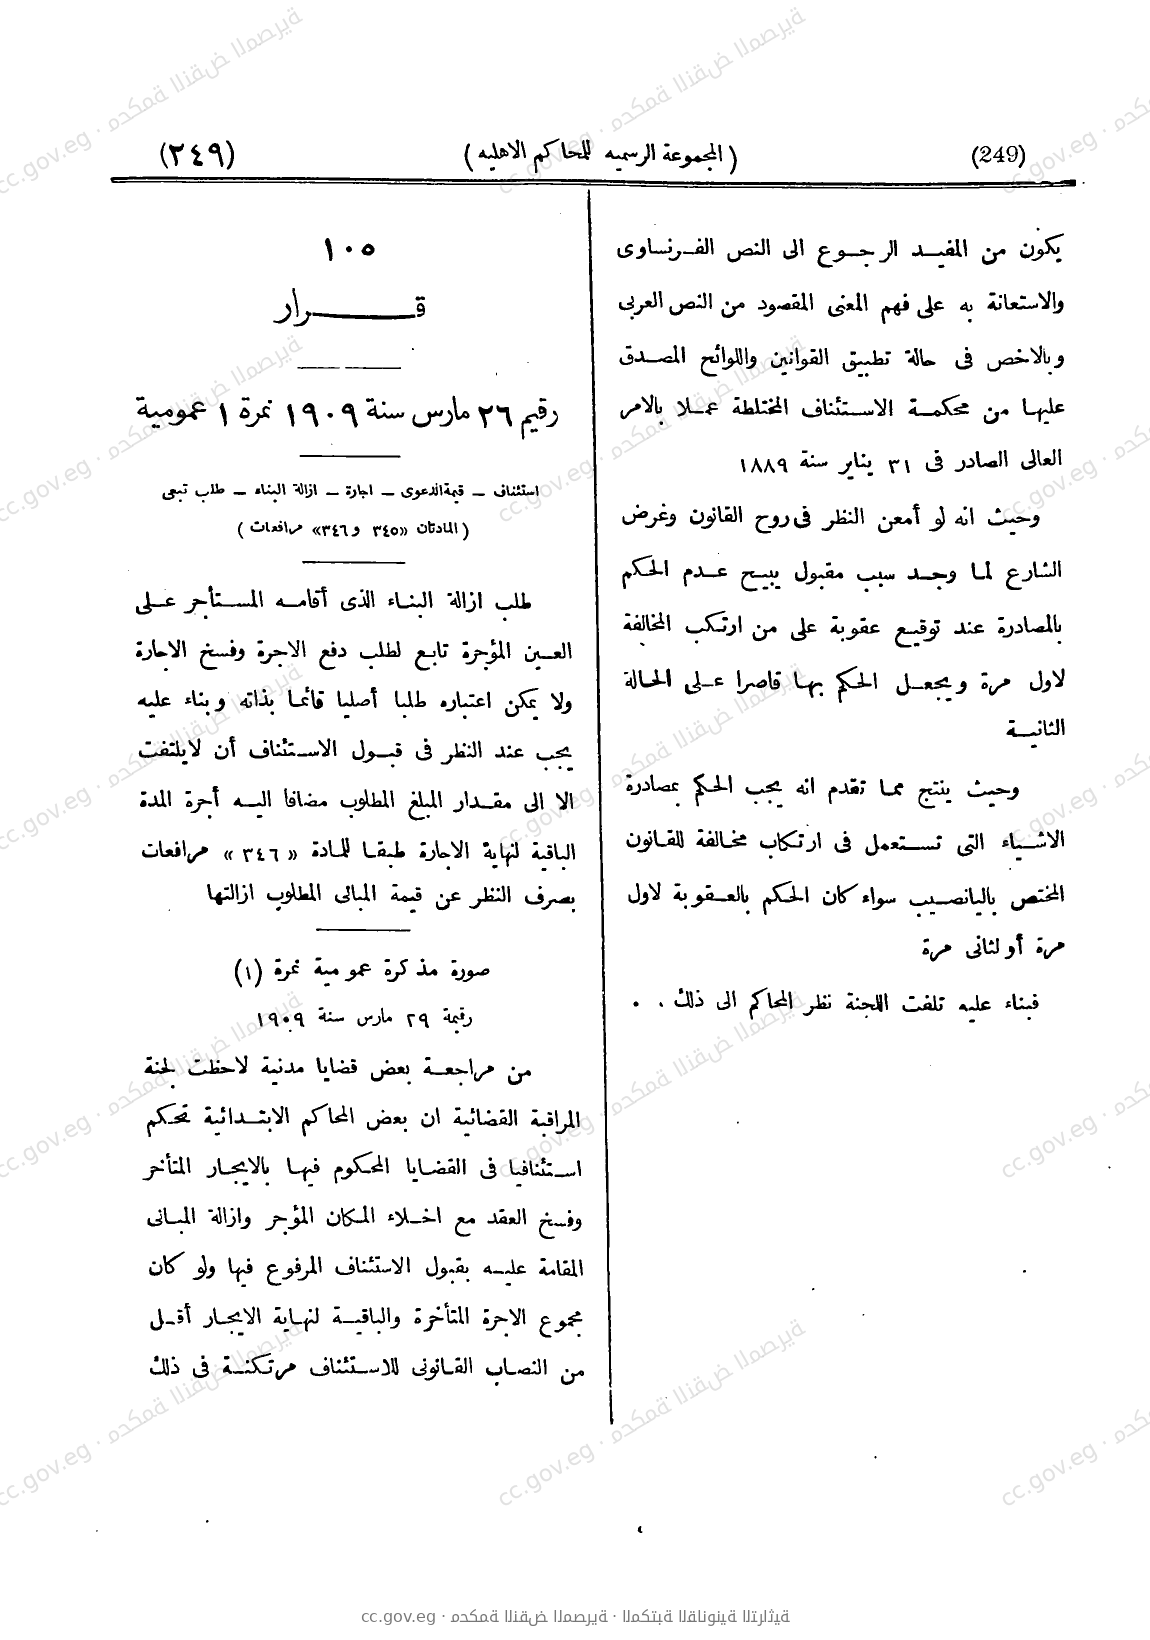 (249) (المجموعة الرسميه للمحاكم الاهليه) (٢٤٩)
يكون من المفيد الرجوع الى النص الفرنساوى
والاستعانة به على فهم المعنى المقصود من النص العربى
وبالاخص فى حالة تطبيق القوانين واللوائح المصدق
عليها من محكمة الاستئناف المختلطة عملا بالامر
العالى الصادر فى ٣١ يناير سنة ١٨٨٩
وحيث انه لو أمعن النظر فى روح القانون وغرض
الشارع لما وجد سبب مقبول يبيح عدم الحكم
بالمصادرة عند توقيع عقوبة على من ارتكب المخالفة
لاول مرة ويجعل الحكم بها قاصرا على الحالة
الثانية
وحيث ينتج مما تقدم انه يجب الحكم بمصادرة
الاشياء التى تستعمل فى ارتكاب مخالفة للقانون
المختص باليانصيب سواء كان الحكم بالعقوبة لاول
مرة أو لثانى مرة
فبناء عليه تلفت اللجنة نظر المحاكم الى ذلك . .
١٠٥
قرار
رقيم ٢٦ مارس سنة ١٩٠٩ نمرة ١ عمومية
استئناف – قيمة الدعوى – اجارة – ازالة البناء – طلب تبعى
(المادتان «٣٤٥ و٣٤٦» مرافعات)
طلب ازالة البناء الذى أقامه المستأجر على
العين المؤجرة تابع لطلب دفع الاجرة وفسخ الاجارة
ولا يمكن اعتباره طلبا أصليا قائما بذاته وبناء عليه
يجب عند النظر فى قبول الاستئناف أن لايلتفت
الا الى مقدار المبلغ المطلوب مضافا اليه أجرة المدة
الباقية لنهاية الاجارة طبقا للمادة «٣٤٦» مرافعات
بصرف النظر عن قيمة المبانى المطلوب ازالتها
صورة مذكرة عمومية نمرة (١)
رقيمة ٢٩ مارس سنة ١٩٠٩
من مراجعة بعض قضايا مدنية لاحظت لجنة
المراقبة القضائية ان بعض المحاكم الابتدائية تحكم
استئنافيا فى القضايا المحكوم فيها بالايجار المتأخر
وفسخ العقد مع اخلاء المكان المؤجر وازالة المبانى
المقامة عليه بقبول الاستئناف المرفوع فيها ولو كان
مجموع الاجرة المتأخرة والباقية لنهاية الايجار أقل
من النصاب القانونى للاستئناف مرتكنة فى ذلك
cc.gov.eg · محكمة النقض المصرية · المكتبة القانونية التراثية